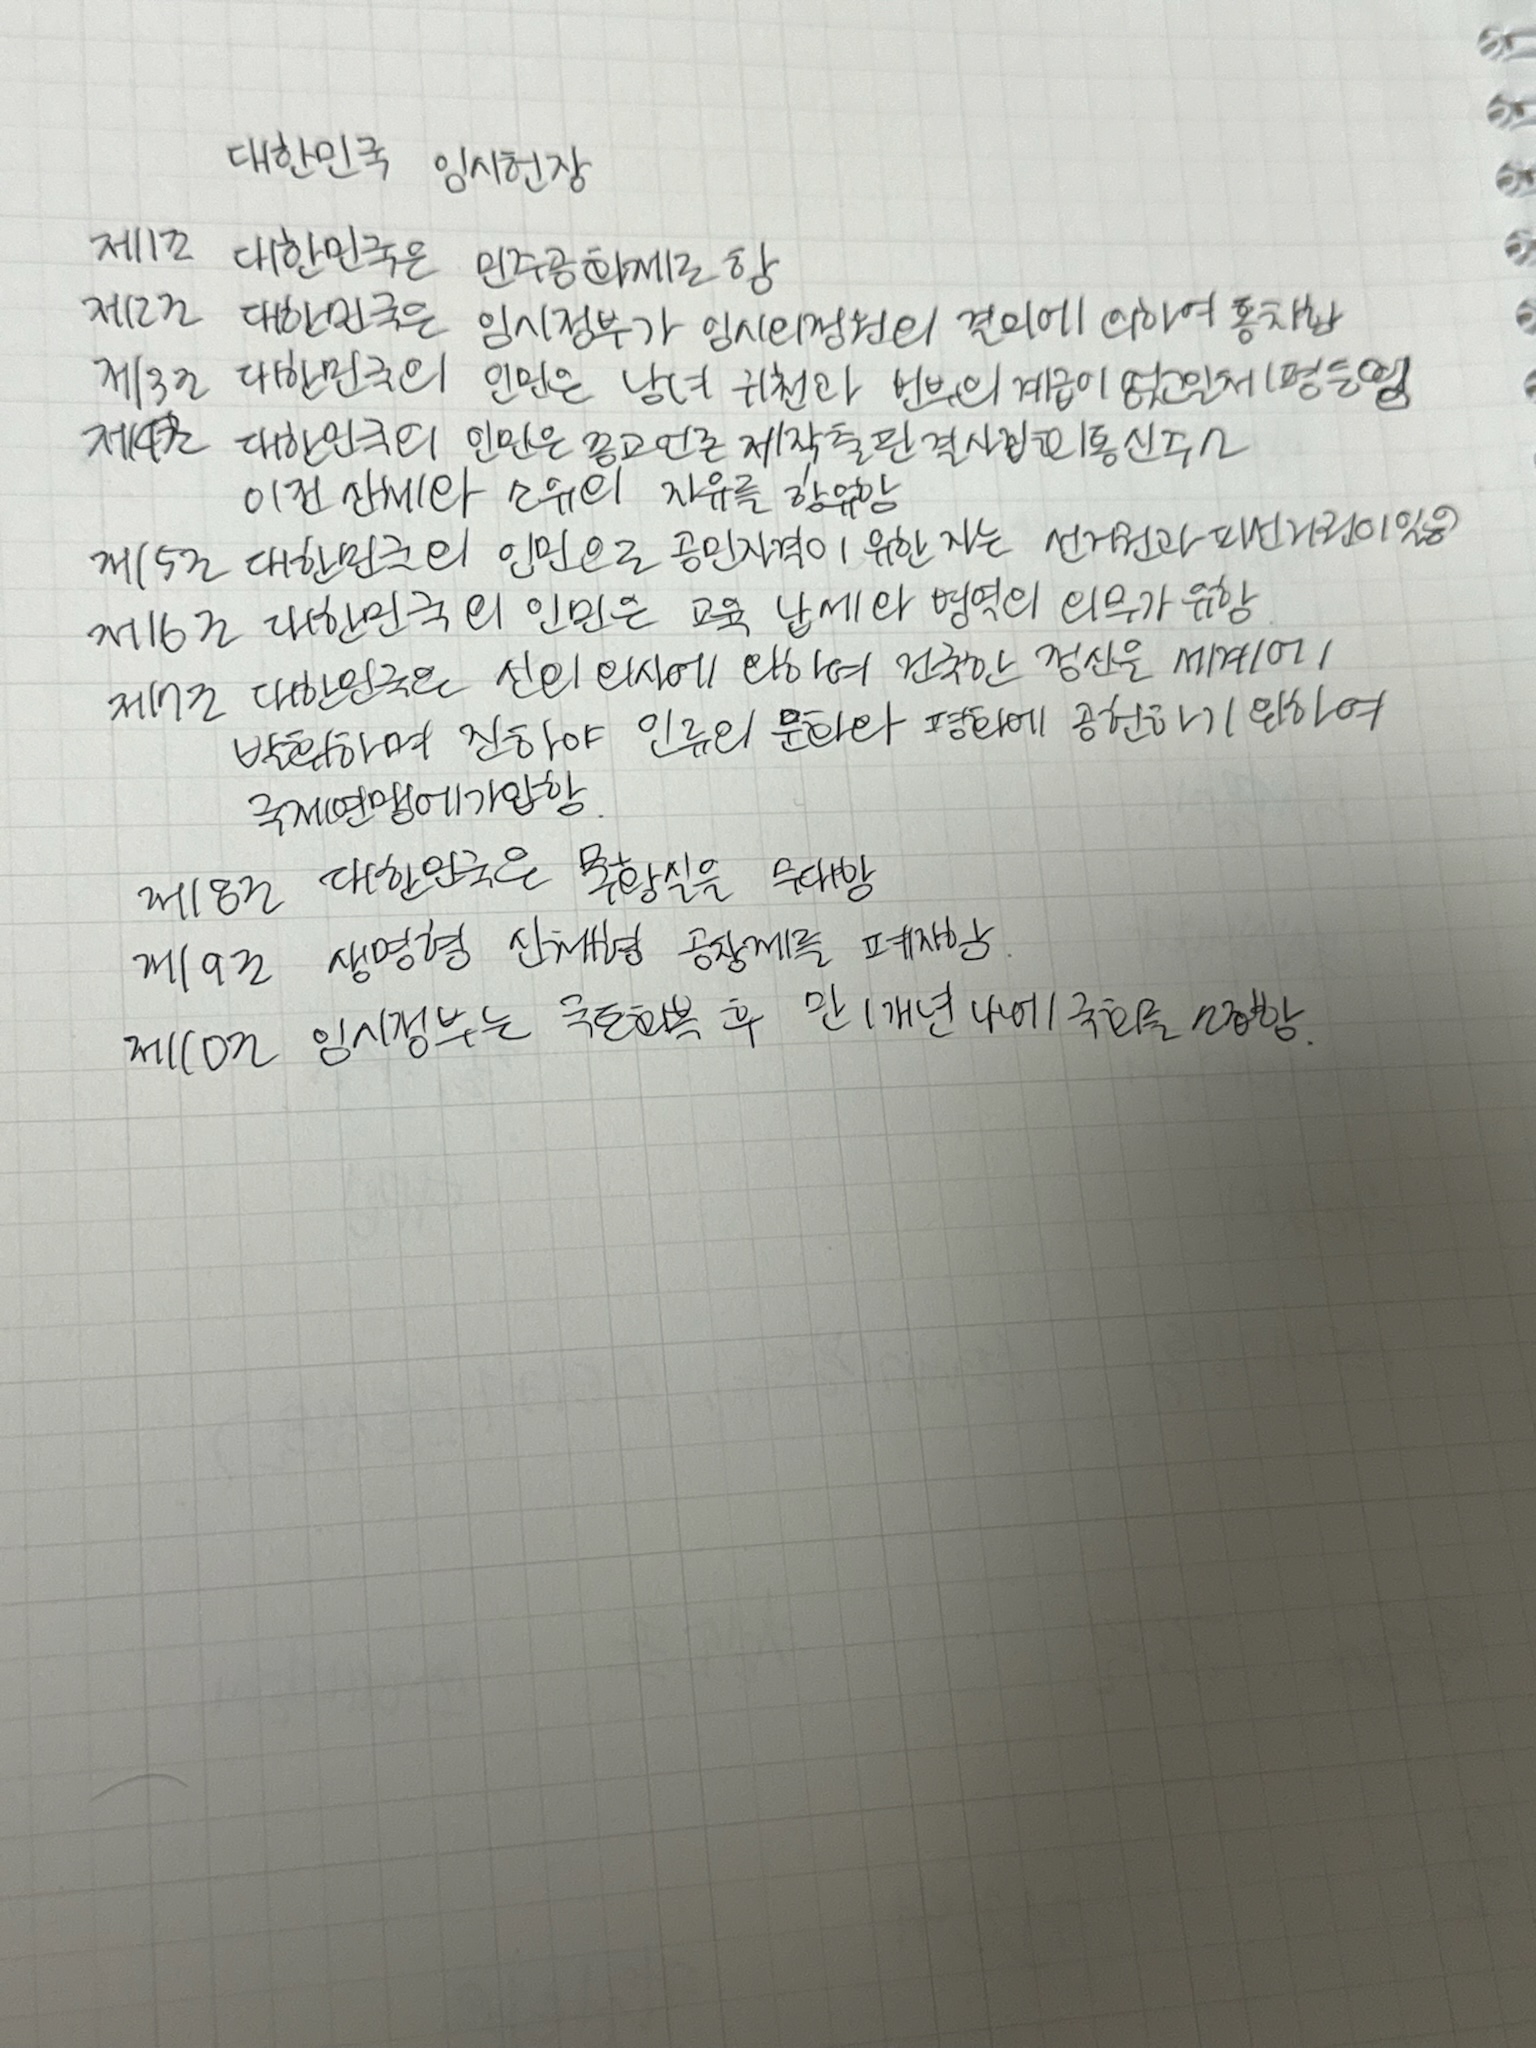 대한민국 임시헌장
제1조 대한민국은 민주공화제로 함
제2조 대한민국은 임시정부가 임시의정원의 결의에 의하여 통치함
제3조 대한민국의 인민은 남녀 귀천과 빈부의 계급이 없고 일체 평등임
제4조 대한민국의 인민은 종교 언론 제작 출판 결사 집회 통신 주소
이전 신체와 소유의 자유를 향유함
제5조 대한민국의 인민으로 공민자격이 유한 자는 선거권과 피선거권이 있음
제6조 대한민국의 인민은 교육 납세와 병역의 의무가 유함
제7조 대한민국은 신의 의사에 의하여 건국한 정신을 세계에
발휘하며 진하야 인류의 문화와 평화에 공헌하기 위하여
국제연맹에 가입함.
제8조 대한민국은 구황실을 우대함
제9조 생명형 신체형 공창제를 폐지함.
제10조 임시정부는 국토회복 후 만 1개년 내에 국회를 소집함.